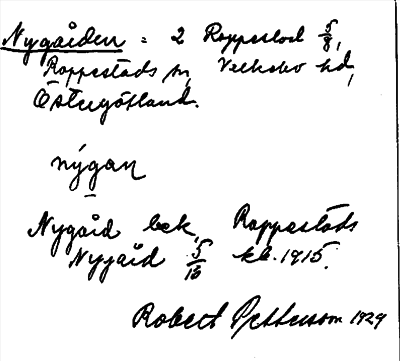 Nygården = 2 Rappestad 5/8,
Rappestads sn, Valkebo hd,
Östergötland.
nýgan
Nygård bek, Rappestads
Nygård 5/16 kb. 1915.
Robert Pettersson 1929